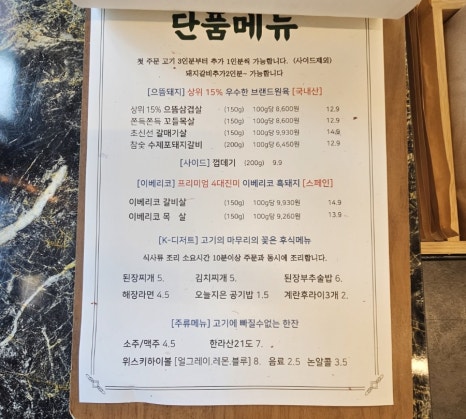 단품메뉴
첫 주문 고기 3인분부터 추가 1인분씩 가능합니다. (사이드제외)
돼지갈비추가2인분~ 가능합니다
[으뜸돼지] 상위 15% 우수한 브랜드원육 [국내산]
상위 15% 으뜸삼겹살 (150g) 100g당 8,600원 12.9
쫀득쫀득 꼬들목살 (150g) 100g당 8,600원 12.9
초신선 갈매기살 (150g) 100g당 9,930원 14.9
참숯 수제포돼지갈비 (200g) 100g당 6,450원 12.9
[사이드] 껍데기 (200g) 9.9
[이베리코] 프리미엄 4대진미 이베리코 흑돼지 [스페인]
이베리코 갈비살 (150g) 100g당 9,930원 14.9
이베리코 목 살 (150g) 100g당 9,260원 13.9
[K-디저트] 고기의 마무리의 꽃은 후식메뉴
식사류 조리 소요시간 10분이상 주문과 동시에 조리합니다.
된장찌개 5. 김치찌개 5. 된장부추술밥 6.
해장라면 4.5 오늘지은 공기밥 1.5 계란후라이3개 2.
[주류메뉴] 고기에 빠질수없는 한잔
소주/맥주 4.5 한라산21도 7.
위스키하이볼 [얼그레이.레몬.블루] 8. 음료 2.5 논알콜 3.5